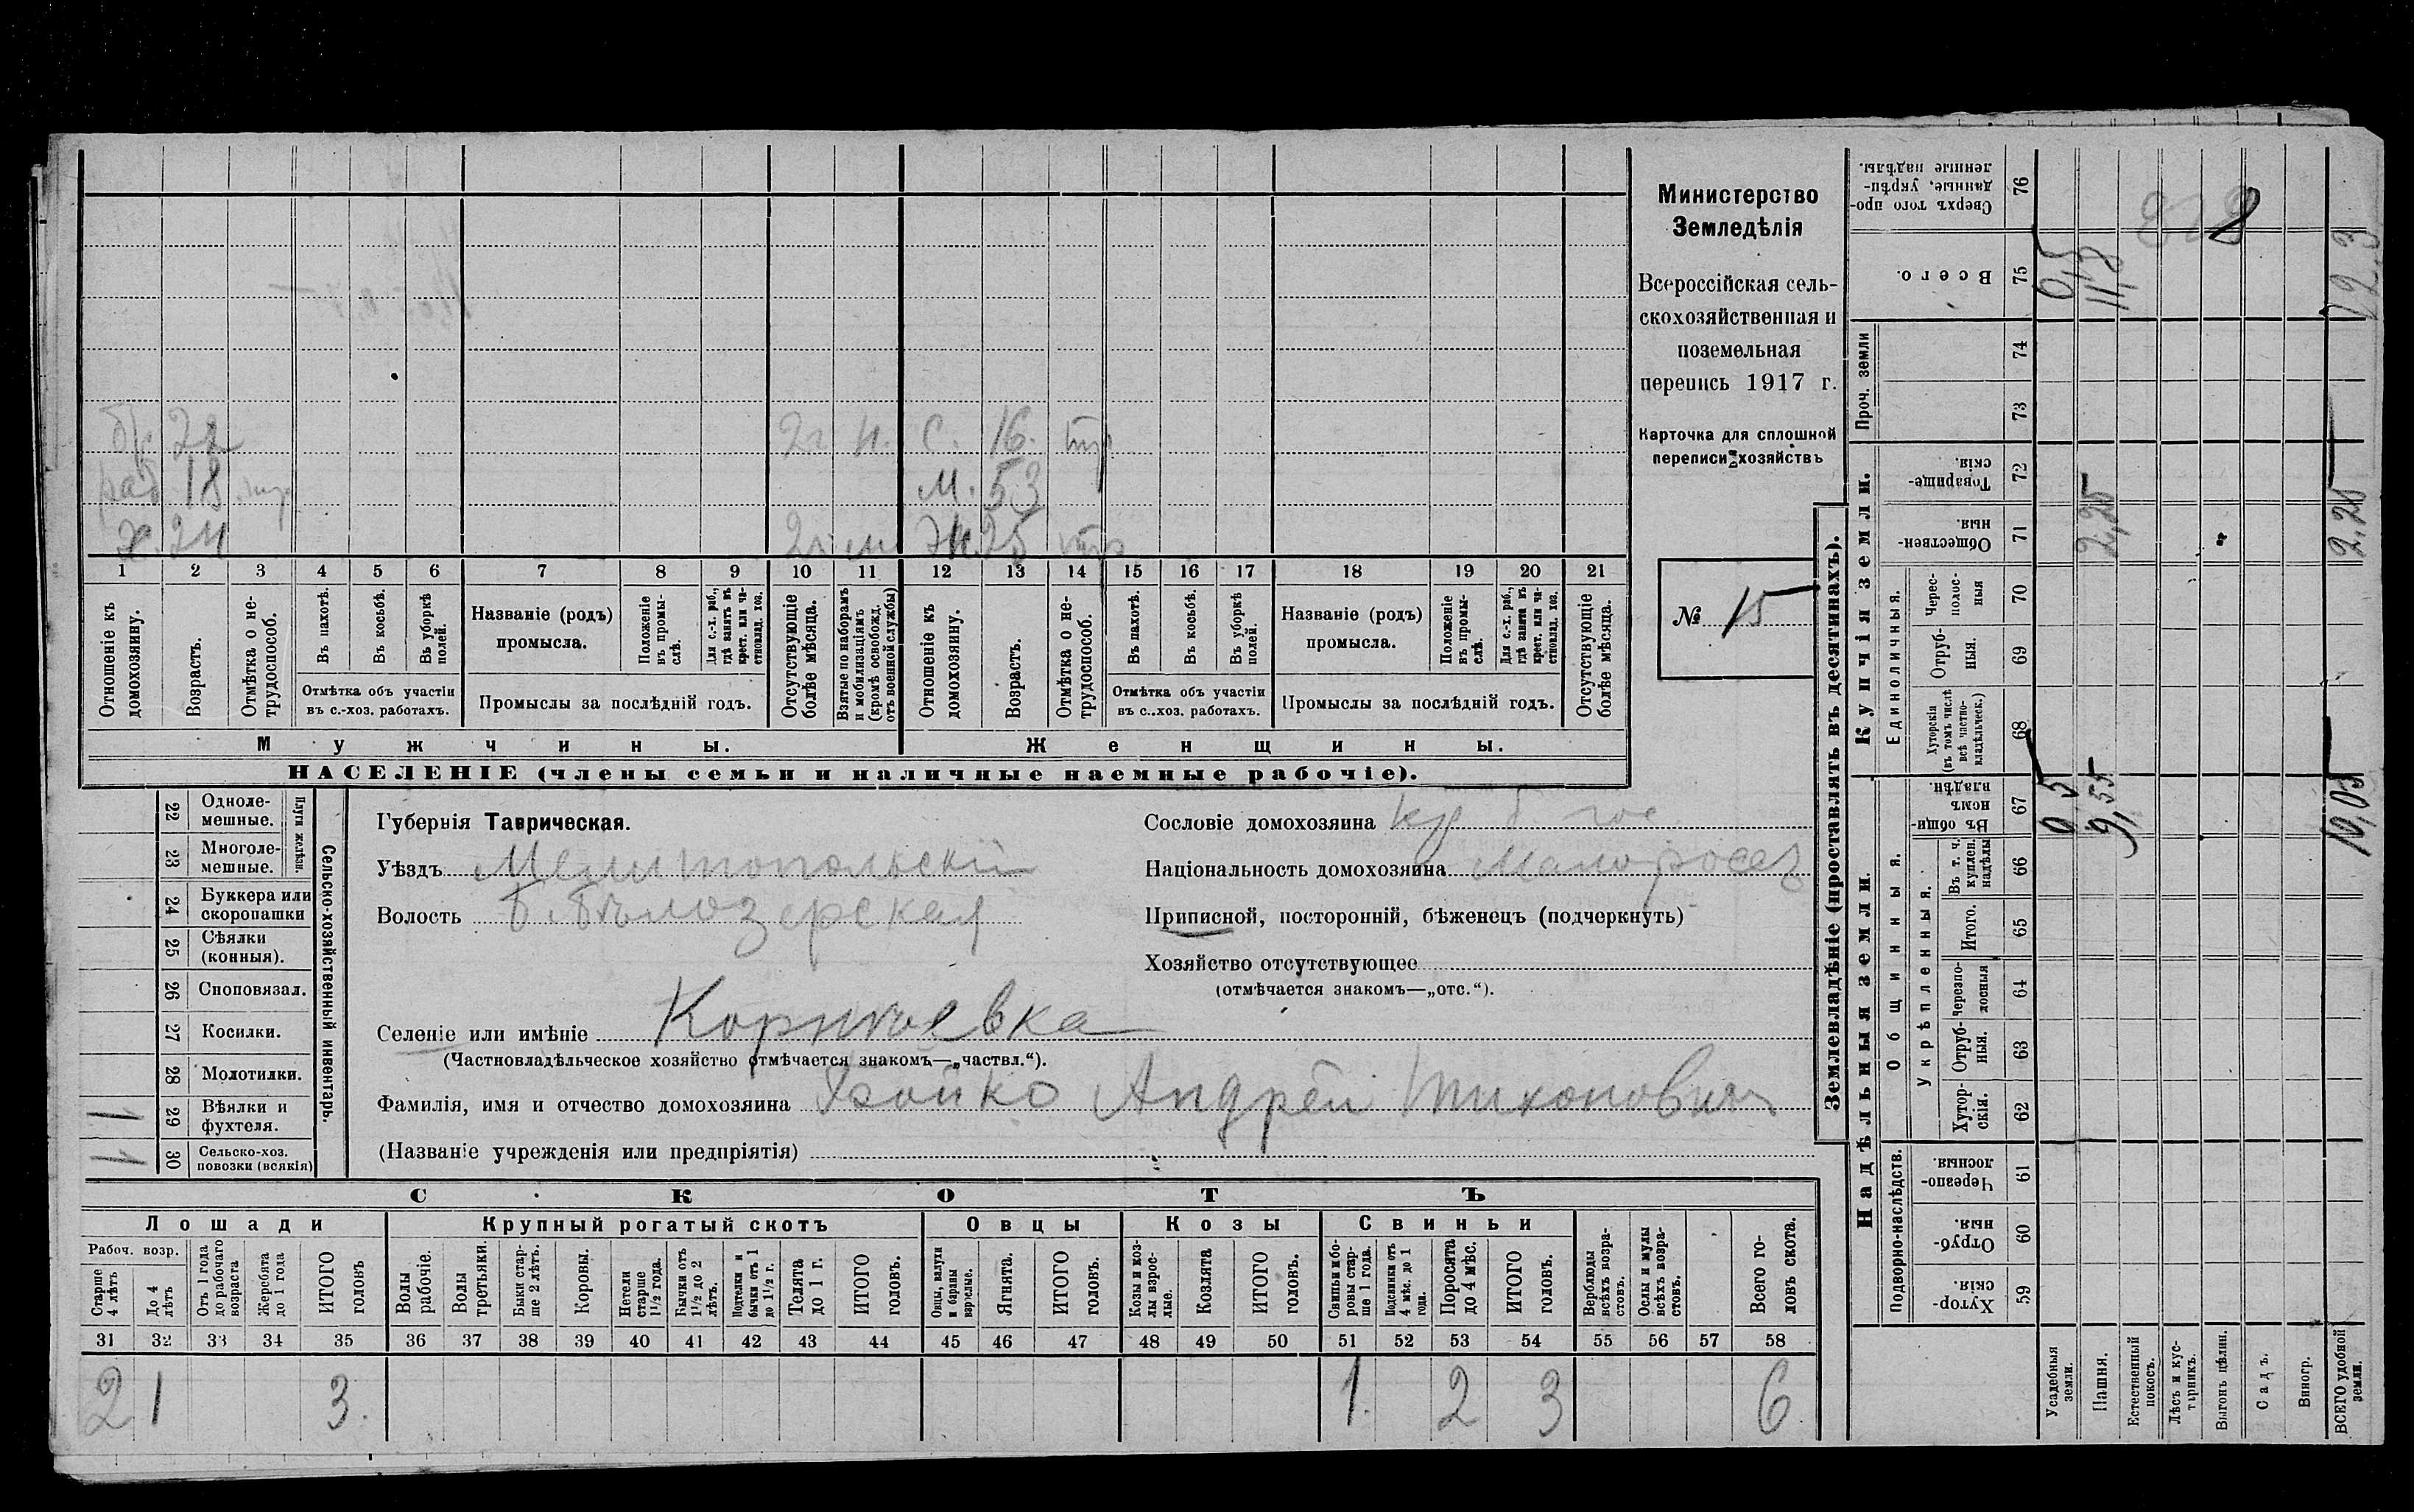 Министерство
Земледѣлія
Всероссійская сель-
скохозяйственная и
поземельная
перепись 1917 г.
Карточка для сплошной
переписи хозяйствъ
№ 15
бр 22 2г. н. С. 16. нтр
раб 18 нтр М. 53
х. 24 2г. м Ж 25 нтр
1 2 3 4 5 6 7 8 9 10 11 12 13 14 15 16 17 18 19 20 21
Отношеніе къ домохозяину.
Возрастъ.
Отмѣтка о не-трудоспособ.
Въ пахотѣ.
Въ косьбѣ.
Въ уборкѣ полей.
Отмѣтка объ участіи
въ с.-хоз. работахъ.
Названіе (родъ)
промысла.
Положеніе въ промы-слѣ.
Для с.-х. раб., гдѣ занятъ въ крест. или ча-стновлад. хоз.
Промыслы за послѣдній годъ.
Отсутствующіе болѣе мѣсяца.
Взятые по наборамъ и мобилизаціямъ (кромѣ освобожд. отъ военной службы)
Отношеніе къ домохозяину.
Возрастъ.
Отмѣтка о не-трудоспособ.
Въ пахотѣ.
Въ косьбѣ.
Въ уборкѣ полей.
Отмѣтка объ участіи
въ с..хоз. работахъ.
Названіе (родъ)
промысла.
Положеніе въ промы-слѣ.
Для с.-х. раб., гдѣ занята въ крест. или ча-стновлад. хоз.
Промыслы за послѣдній годъ.
Отсутствующіе болѣе мѣсяца.
Мужчины.
Женщины.
НАСЕЛЕНІЕ (члены семьи и наличные наемные рабочіе).
Сельско-хозяйственный инвентарь.
Плуги желѣзн.
22 Одноле-мешные.
23 Многоле-мешные.
24 Буккера или скоропашки
25 Сѣялки (конныя).
26 Сноповязал.
27 Косилки.
28 Молотилки.
1 29 Вѣялки и фухтеля.
1 30 Сельско-хоз. повозки (всякія)
Губернія Таврическая.
Уѣздъ Мелитопольскій
Волость Б. Бѣлозерская
Селеніе или имѣніе Корнѣевка
(Частновладѣльческое хозяйство отмѣчается знакомъ—„частвл.“).
Фамилія, имя и отчество домохозяина Бойко Андрей Тихонович
(Названіе учрежденія или предпріятія)
Сословіе домохозяина кр б. гос
Національность домохозяина Малоросъ
Приписной, посторонній, бѣженецъ (подчеркнуть)
Хозяйство отсутствующее
(отмѣчается знакомъ—„отс.“).
СКОТЪ
Лошади Крупный рогатый скотъ Овцы Козы Свиньи
Рабоч. возр.
Старше 4 лѣтъ
До 4 лѣтъ
Отъ 1 года до рабочаго возраста
Жеребята до 1 года
ИТОГО головъ
Волы рабочіе.
Волы третьяки.
Быки стар-ше 2 лѣтъ.
Коровы.
Нетели старше 1½ года.
Бычки отъ 1½ до 2 лѣтъ.
Подтелки и бычки отъ 1 до 1½ г.
Телята до 1 г.
ИТОГО головъ.
Овцы, валухи и бараны взрослые.
Ягнята.
ИТОГО головъ.
Козы и коз-лы взрос-лые.
Козлята
ИТОГО головъ.
Свиньи бо-ровы стар-ше 1 года.
Подсвинки отъ 4 мѣс. до 1 года.
Поросята до 4 мѣс.
ИТОГО головъ.
Верблюды всѣхъ возра-стовъ.
Ослы и мулы всѣхъ возра-стовъ.
Всего го-ловъ скота.
31 32 33 34 35 36 37 38 39 40 41 42 43 44 45 46 47 48 49 50 51 52 53 54 55 56 57 58
2 1 3. 1. 2 3 6
Землевладѣніе (проставлять въ десятинахъ).
Надѣльныя земли
Подворно-наслѣдств.
Хутор-скія 59
Отруб-ныя 60
Черезпо-лосныя 61
Общинныя.
Укрѣпленныя.
Хутор-скія. 62
Отруб-ныя. 63
Черезпо-лосныя 64
Итого. 65
Въ т. ч. куплен. надѣлы 66
Въ общи-номъ владѣн. 67
Купчія земли.
Единоличныя.
Хуторскія (въ томъ числѣ всѣ частно-владѣльческ.) 68
Отруб-ныя. 69
Черес-полос-ныя 70
Обществен-ныя. 71
Товарище-скія. 72
Проч. земли
73
74
Всего. 75
Сверхъ того про-данные, укрѣп-ленные надѣлы. 76
Усадебныя земли. 0,5 0,5
Пашня. 9,55 2,25 11,8
Естественный покосъ.
Лѣсъ и кус-тарникъ.
Выгонъ цѣлин.
Садъ.
Виногр.
ВСЕГО удобной земли. 10,05 2,25 12,3